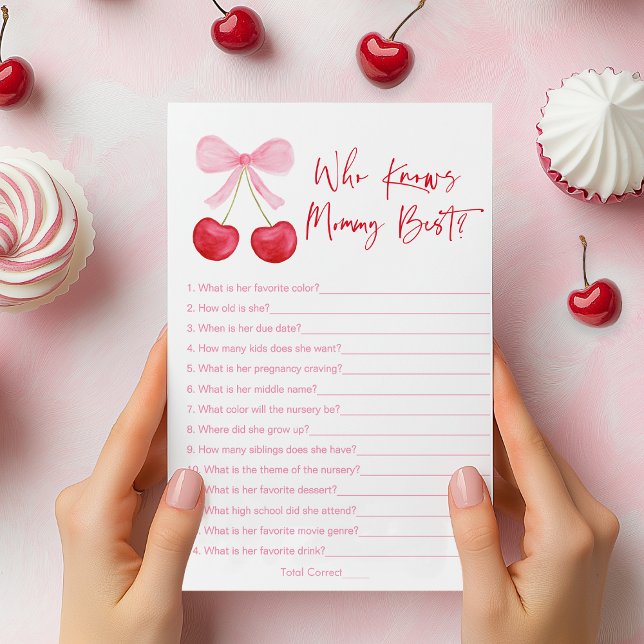 Who Knows
Mommy Best?
1. What is her favorite color?
2. How old is she?
3. When is her due date?
4. How many kids does she want?
5. What is her pregnancy craving?
6. What is her middle name?
7. What color will the nursery be?
8. Where did she grow up?
9. How many siblings does she have?
10. What is the theme of the nursery?
What is her favorite dessert?
What high school did she attend?
What is her favorite movie genre?
4. What is her favorite drink?
Total Correct